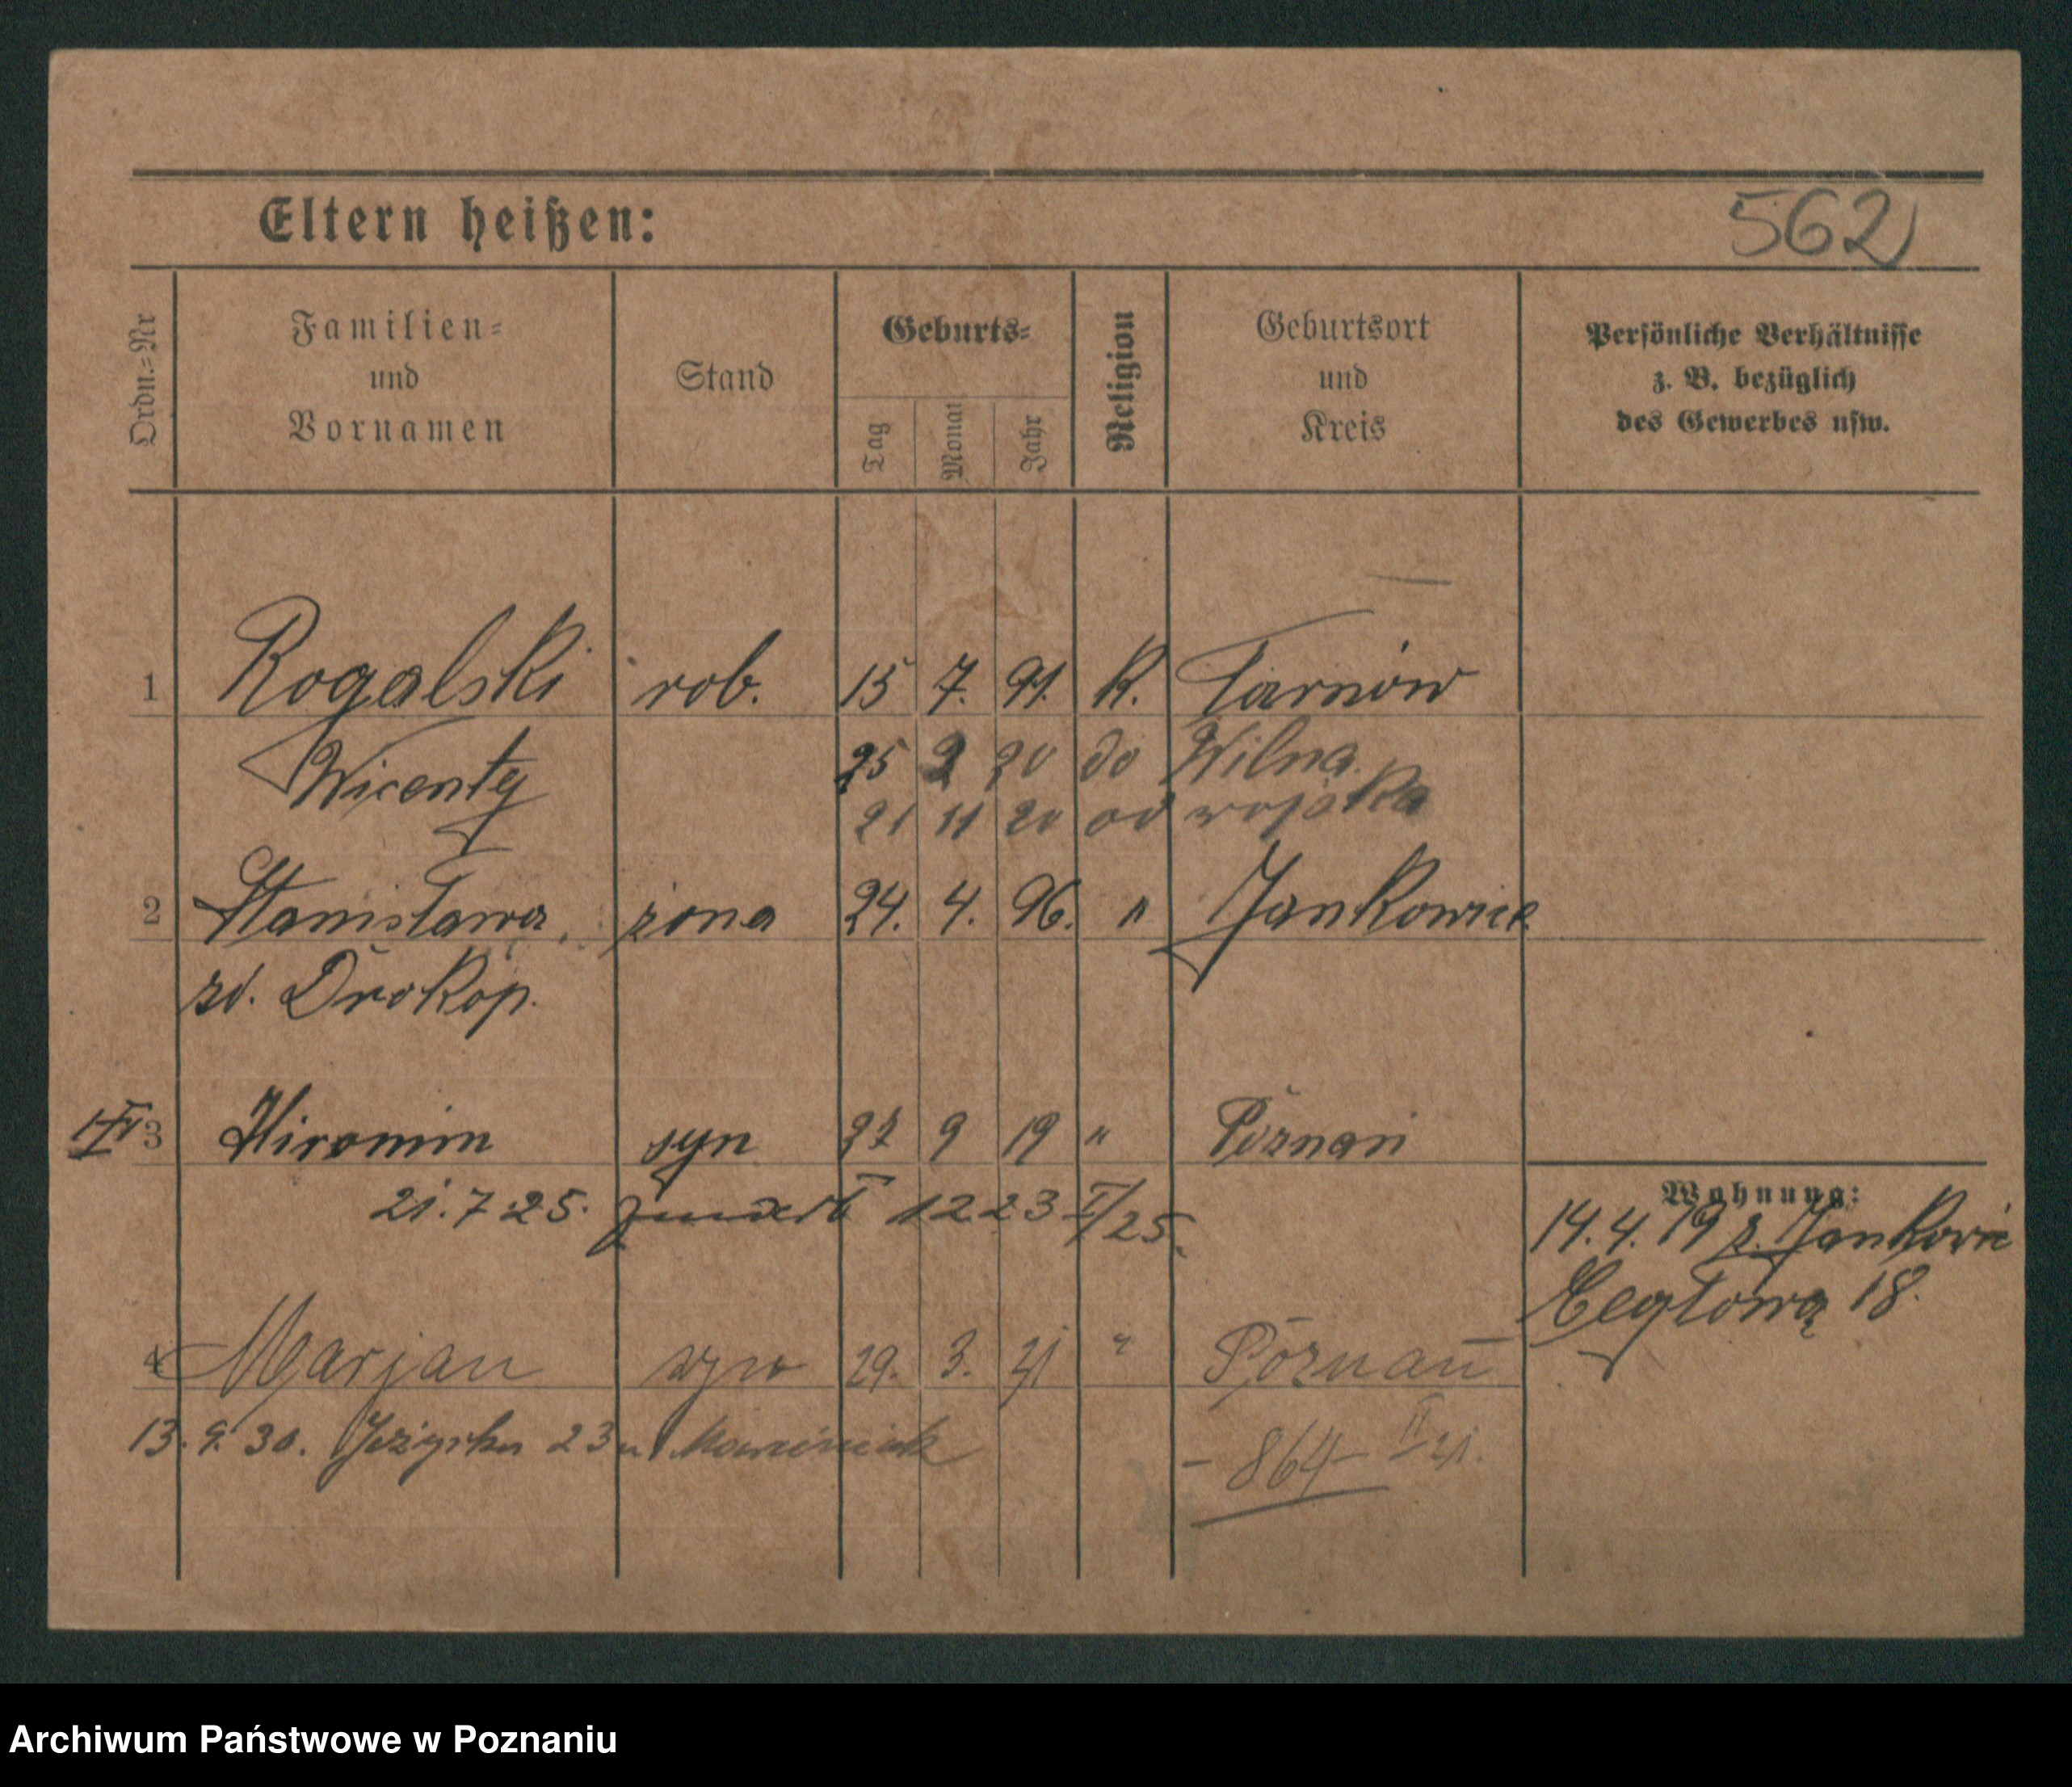 Eltern heißen:
562
Ordn.=Nr
Familien=
und
Vornamen
Stand
Geburts=
Tag
Monat
Jahr
Religion
Geburtsort
und
Kreis
Persönliche Verhältnisse
z. B. bezüglich
des Gewerbes usw.
1 Rogalski rob. 15 7. 91. K. Tarnów
Wicenty 25 2 20 do Wilna
21 11 20 od wojska
2 Stanisława, żona 24. 4. 96. " Jankowice
zd. Prokop.
3 Hironim syn 9 19 " Poznań
21.7 25. 1223 I/25.
Wohnung:
14. 4. 19 z. Jankowic
Cegłową 18.
4 Marjan syn 29. 3. 21 " Poznań
13. 9. 30. 23
- 864 - II 21.
Archiwum Państwowe w Poznaniu